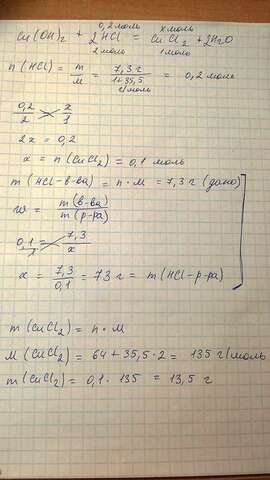 0,2 моль x моль
Cu(OH)₂ + 2HCl = CuCl₂ + 2H₂O
2 моль 1 моль
n(HCl) = m/M = 7,3 г/1+35,5 г/моль = 0,2 моль
0,2/2 x/1
2x = 0,2
x = n(CuCl₂) = 0,1 моль
m(HCl-в-ва) = n·M = 7,3 г (дано)
w = m(в-ва)/m(р-ра)
0,1/1 = 7,3/x
x = 7,3/0,1 = 73 г = m(HCl-р-ра)
m(CuCl₂) = n·M
M(CuCl₂) = 64 + 35,5·2 = 135 г/моль
m(CuCl₂) = 0,1·135 = 13,5 г